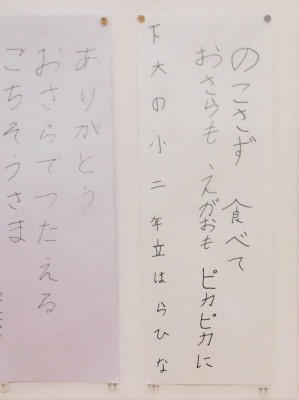 のこさず 食べて
おさらも えがおも ピカピカに
下大の小二年立はらひな
ありがとう
おさらでつたえる
ごちそうさま